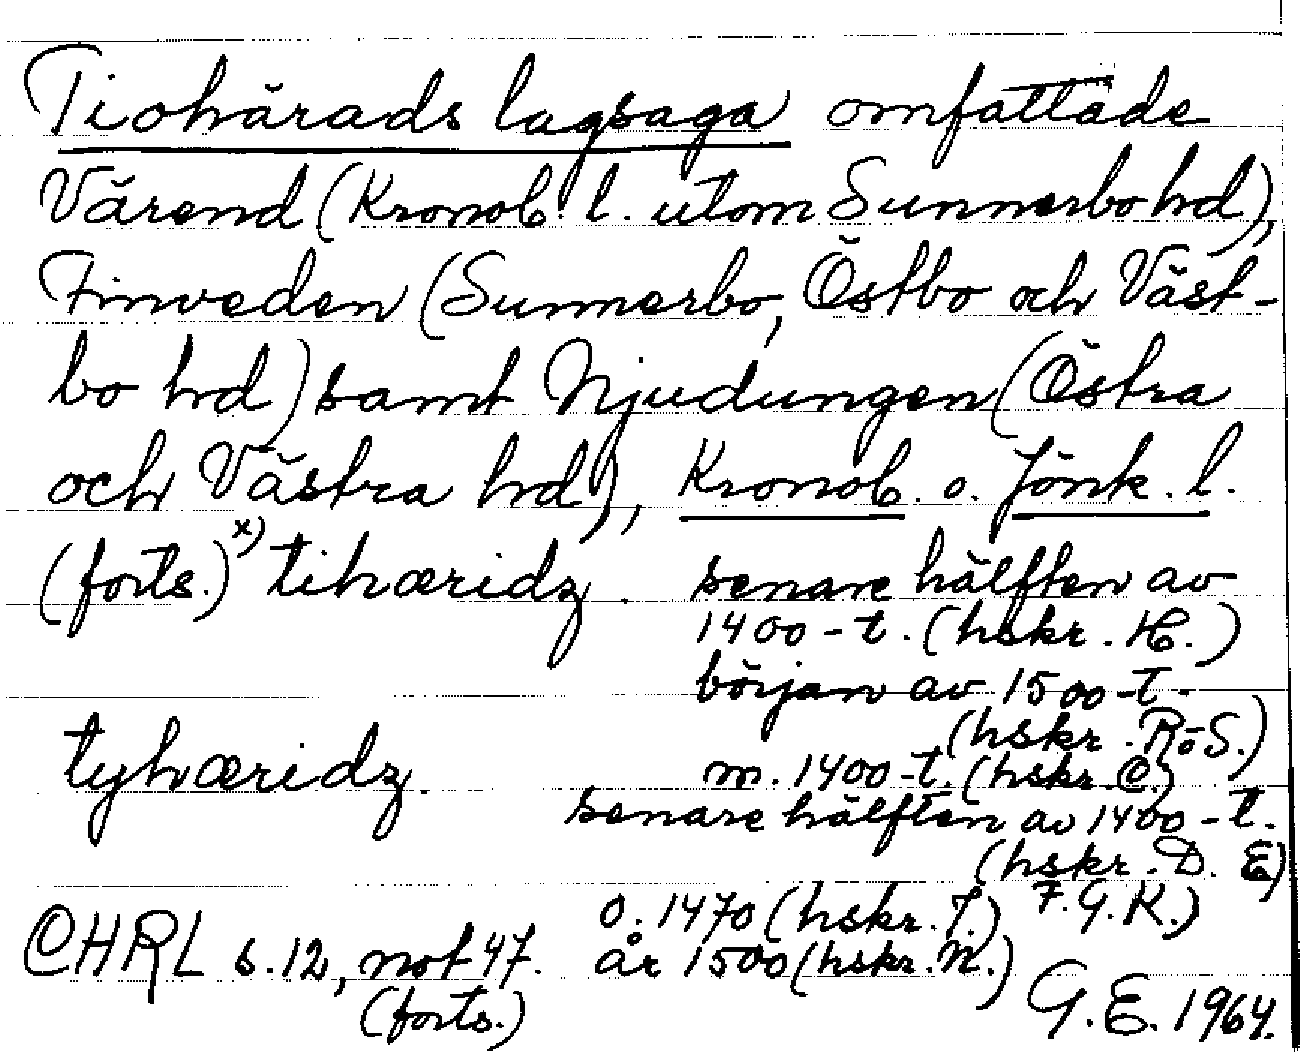 Tiohärads lagsaga omfattade
Värend (Kronob. l. utom Sunnerbo hd),
Finveden (Sunnerbo, Östbo och Väst-
bo hd) samt Njudungen (Östra
och Västra hd), Kronob. o. Jönk. l.
(forts.) x) tihæridz. senare hälften av
1400-t. (hskr. H.)
början av 1500-t.
(hskr. R o S.)
tyhæridz. m. 1400-t. (hskr. C.)
senare hälften av 1400-t.
(hskr. D. E)
F. G. K.)
o. 1470 (hskr. J.)
CHRL s. 12, not 47. år 1500 (hskr. N.)
(forts.)
G. E. 1964.